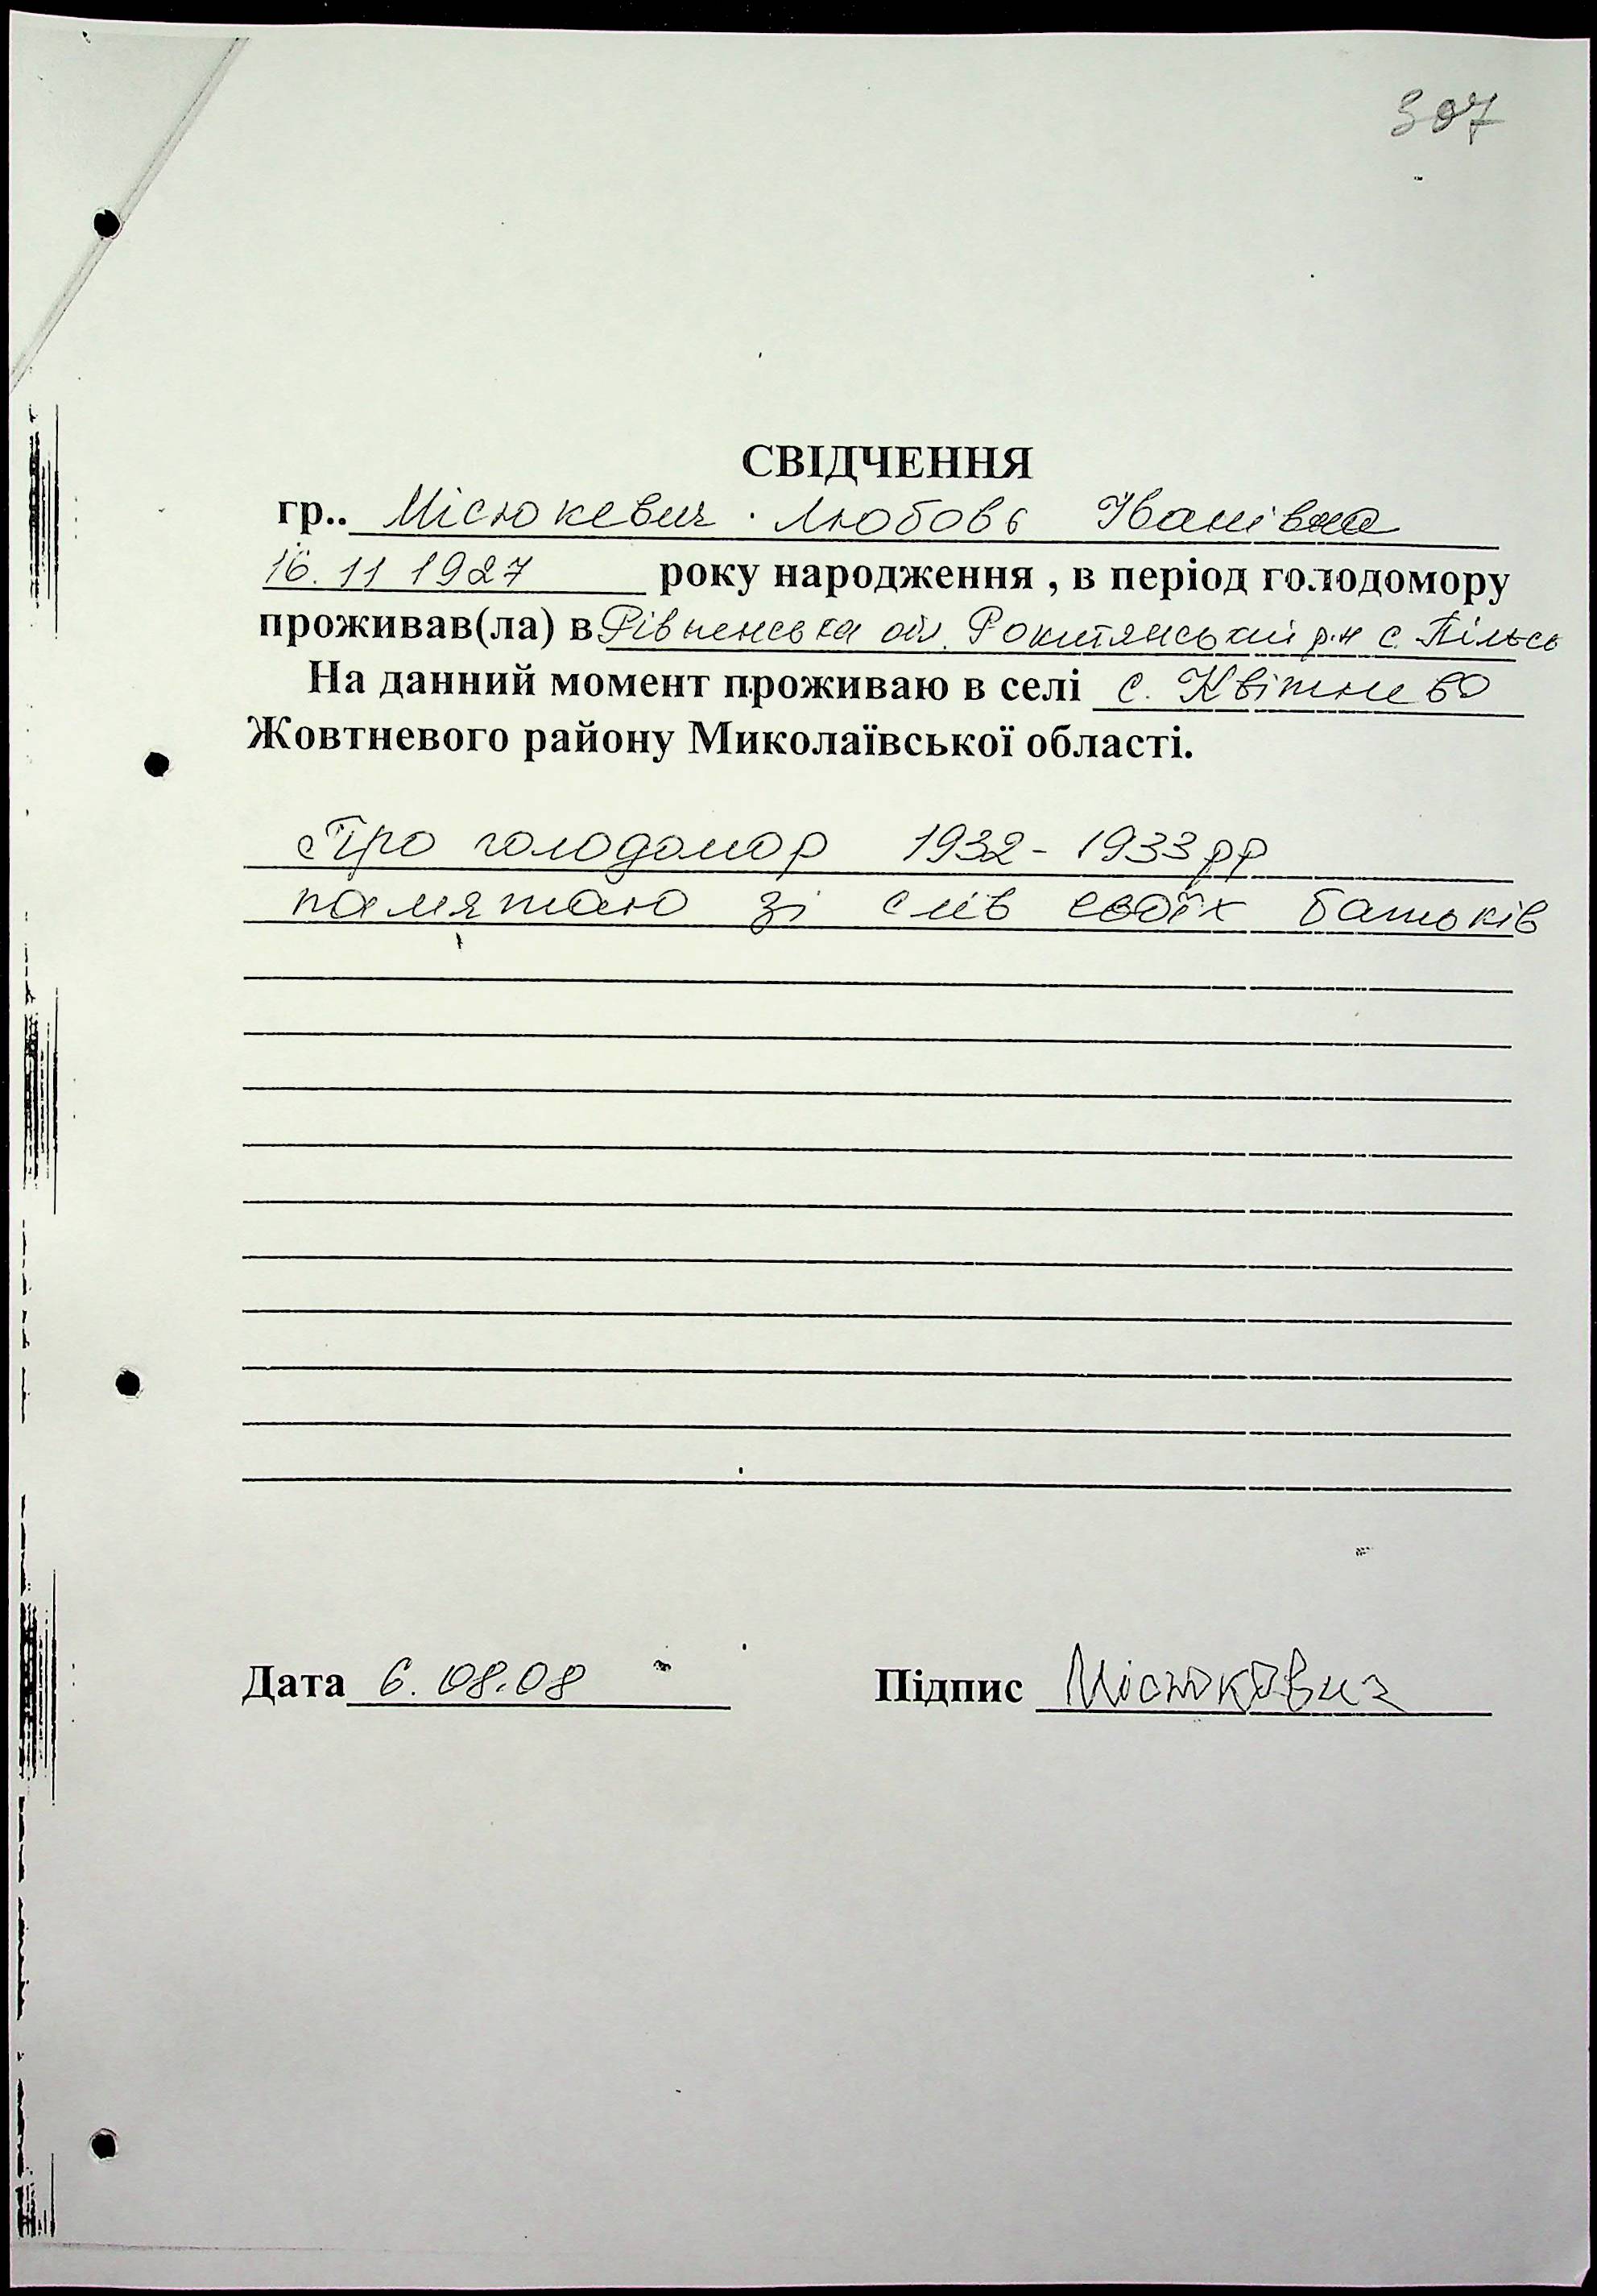 307
СВІДЧЕННЯ
гр.. Місюкевич Любовь Іванівна
16.11 1927 року народження , в період голодомору
проживав(ла) в Рівненська обл. Рокитянський р-н с.
На данний момент проживаю в селі с. Квітнево
Жовтневого району Миколаївської області.
Про голодомор 1932-1933 рр
памятаю зі слів своїх батьків
Дата 6.08.08 Підпис Місюкевич